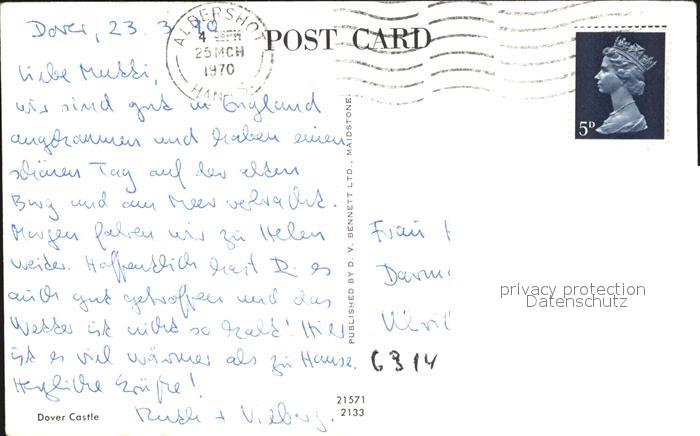 Dover, 23. 3. 70
ALDERSHOT
4
25 MCH
1970
HANTS
POST CARD
5D
Liebe Mutti,
wir sind gut in England
angekommen und haben einen
schönen Tag auf der alten
Burg und am Meer verbracht.
Morgen fahren wir zu Helen
weiter. Hoffentlich hast Du es
auch gut getroffen und das
Wetter ist nicht so kalt! Hier
ist es viel wärmer als zu Hause.
Herzliche Grüße!
Ruth +
Dover Castle
PUBLISHED BY D. V. BENNETT LTD., MAIDSTONE.
21571
2133
Frau
Darm
privacy protection
Datenschutz
6314